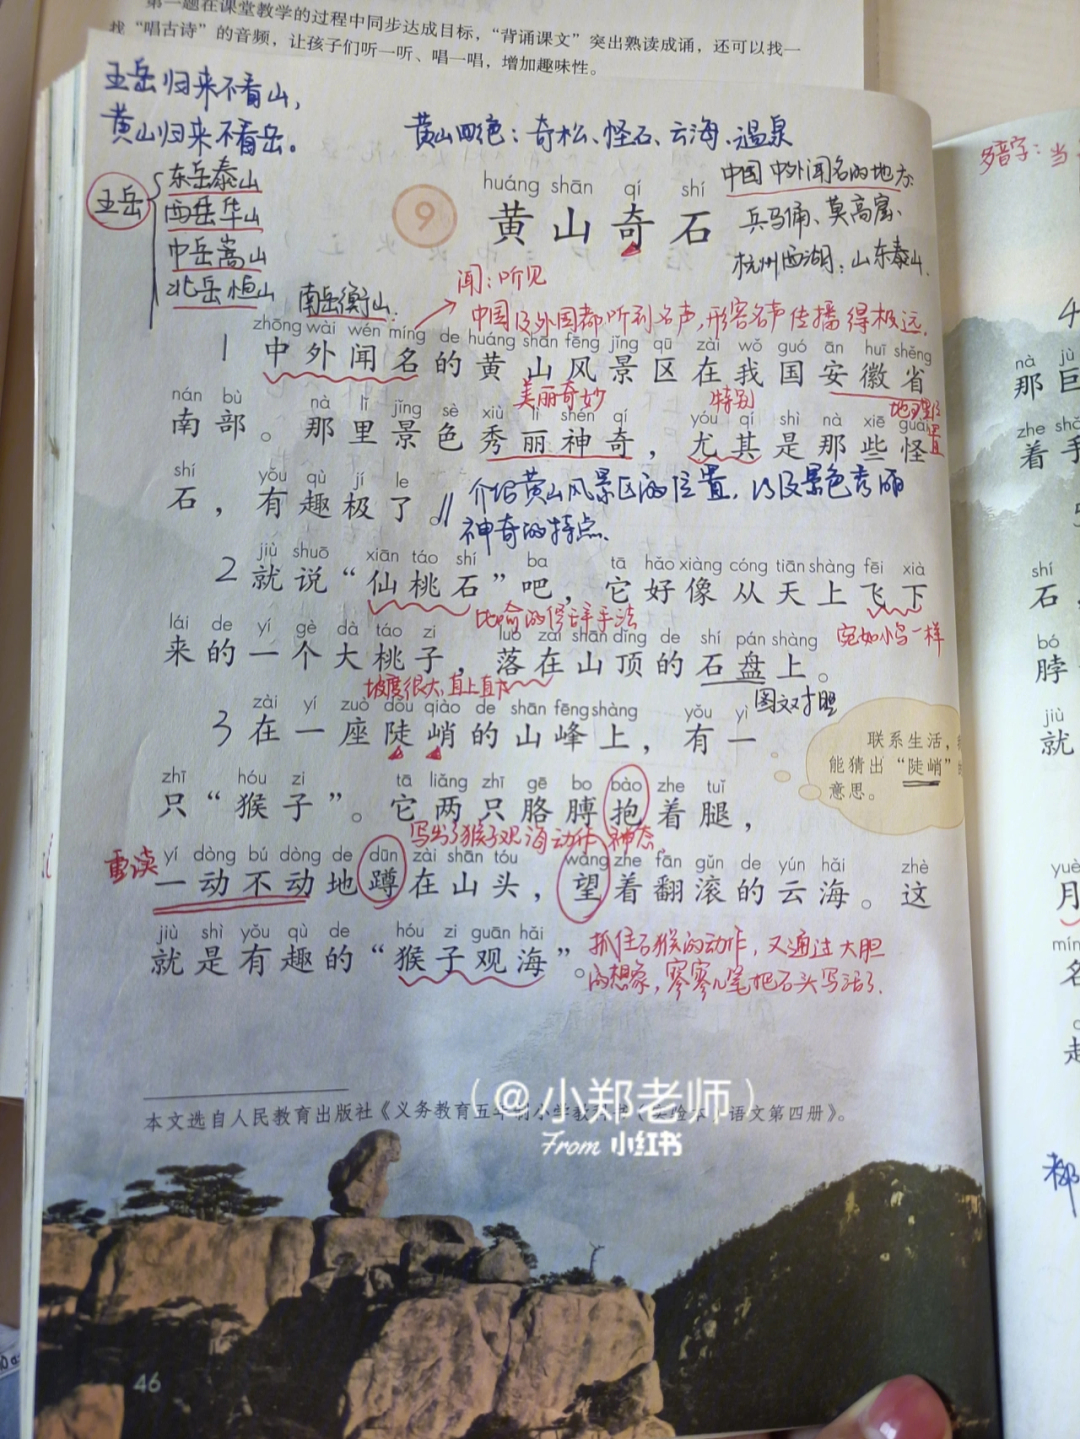 第一题在课堂教学的过程中同步达成目标，“背诵课文”突出熟读成诵，还可以找一
找“唱古诗”的音频，让孩子们听一听、唱一唱，增加趣味性。
五岳归来不看山，
黄山归来不看岳。
黄山四绝：奇松、怪石、云海、温泉
五岳
东岳泰山
西岳华山
中岳嵩山
北岳恒山
南岳衡山
中国中外闻名的地方：
兵马俑、莫高窟、
杭州西湖；山东泰山
huáng shān qí shí
9 黄山奇石
闻：听见
中国及外国都听到名声，形容名声传播得极远.
zhōng wài wén míng de huáng shān fēng jǐng qū zài wǒ guó ān huī shěng
1 中外闻名的黄山风景区在我国安徽省
美丽奇妙
特别
地理位置
nán bù nà lǐ jǐng sè xiù lì shén qí yóu qí shì nà xiē guài
南部。那里景色秀丽神奇，尤其是那些怪
shí yǒu qù jí le
石，有趣极了。
介绍黄山风景区的位置，以及景色秀丽
神奇的特点.
jiù shuō xiān táo shí ba tā hǎo xiàng cóng tiān shàng fēi xià
2 就说“仙桃石”吧，它好像从天上飞下
比喻的修辞手法
宛如小鸟一样
lái de yí gè dà táo zi luò zài shān dǐng de shí pán shàng
来的一个大桃子，落在山顶的石盘上。
坡度很大，直上直下
图文对照
zài yí zuò dǒu qiào de shān fēng shàng yǒu yì
3 在一座陡峭的山峰上，有一
联系生活，
能猜出“陡峭”
意思。
zhī hóu zi tā liǎng zhī gē bo bào zhe tuǐ
只“猴子”。它两只胳膊抱着腿，
写出了猴子观海动作、神态
重读
yí dòng bú dòng de dūn zài shān tóu wàng zhe fān gǔn de yún hǎi zhè
一动不动地蹲在山头，望着翻滚的云海。这
jiù shì yǒu qù de hóu zi guān hǎi
就是有趣的“猴子观海”。
抓住石猴的动作，又通过大胆
的想象，寥寥几笔把石头写活了.
本文选自人民教育出版社《义务教育五年制小学教科书（实验本）语文第四册》。
（@小郑老师）
From 小红书
46
多音字：当
nà jù
那巨
着手
shí
石
bó
脖
jiù
就
yuè
月
míng
名
都